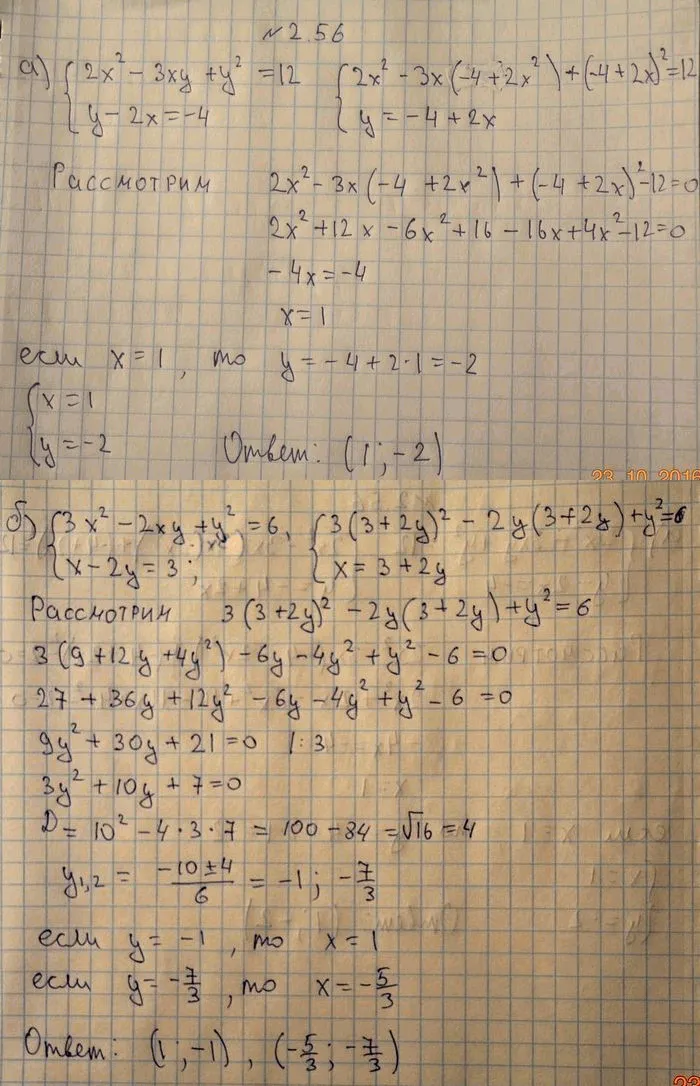 №2.56
а) { 2x² - 3xy + y² = 12   { 2x² - 3x(-4 + 2x²) + (-4 + 2x)² = 12
{ y - 2x = -4   { y = -4 + 2x
Рассмотрим   2x² - 3x(-4 + 2x²) + (-4 + 2x)² - 12 = 0
2x² + 12x - 6x² + 16 - 16x + 4x² - 12 = 0
-4x = -4
x = 1
если x = 1, то y = -4 + 2·1 = -2
{ x = 1
{ y = -2   Ответ: (1; -2)
23 10 2016
б) { 3x² - 2xy + y² = 6,   { 3(3 + 2y)² - 2y(3 + 2y) + y² = 6
{ x - 2y = 3;   { x = 3 + 2y
Рассмотрим   3(3 + 2y)² - 2y(3 + 2y) + y² = 6
3(9 + 12y + 4y²) - 6y - 4y² + y² - 6 = 0
27 + 36y + 12y² - 6y - 4y² + y² - 6 = 0
9y² + 30y + 21 = 0   |:3
3y² + 10y + 7 = 0
D = 10² - 4·3·7 = 100 - 84 = √16 = 4
y₁,₂ = (-10 ± 4)/6 = -1; -7/3
если y = -1, то x = 1
если y = -7/3, то x = -5/3
Ответ: (1; -1), (-5/3; -7/3)